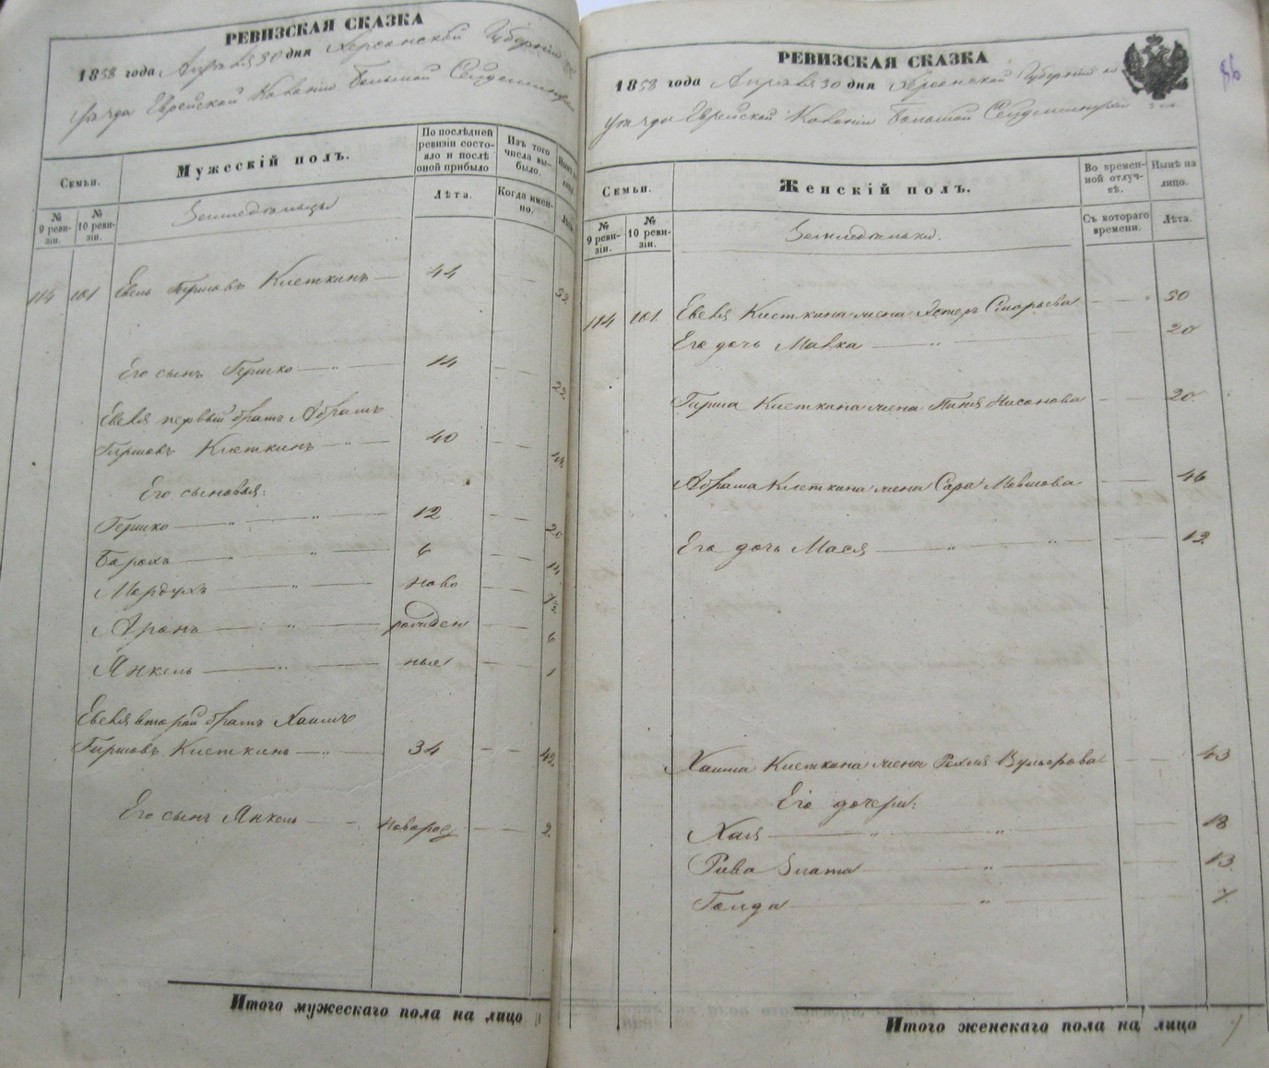 РЕВИЗСКАЯ СКАЗКА
1858 года Апреля 30 дня Херсонской Губернии
уезда Еврейской Колонии Большой Сейдеминухи
Семьи.
Мужескій полъ.
По послѣдней ревизіи состояло и послѣ оной прибыло
Изъ того числа выбыло.
№ 9 ревизіи.
№ 10 ревизіи.
Земледельцы
Лѣта.
Когда именно.
114 101 Евель Гершовъ Клеткинъ 44 52
Его сынъ Гершко 14 22
Евеля первый братъ Абрамъ
Гершовъ Клеткинъ 40 48
Его сыновья:
Гершко 12 20
Барохъ 6 14
Мордухъ ново
Аронъ рожден 6
Янкель ные 1
Евеля второй братъ Хаимъ
Гершовъ Клеткинъ 34 42
Его сынъ Янкель новорож 2
Итого мужескаго пола на лицо
РЕВИЗСКАЯ СКАЗКА
1858 года Апреля 30 дня Херсонской Губернии
уезда Еврейской Колонии Большой Сейдеминухи
Семьи.
Женскій полъ.
Во временной отлучкѣ.
Нынѣ на лицо.
№ 9 ревизіи.
№ 10 ревизіи.
Земледельки.
Съ котораго времени.
Лѣта.
114 101 Евеля Клеткина жена Эстеръ 50
Его дочь Малка 20
Герша Клеткина жена Нисонова 20
Абрама Клеткина жена Сара Мовшова 46
Его дочь Мася 12
Хаима Клеткина жена Рохля Вульфова 43
Его дочери:
Хая 18
Рива Злата 13
Голда 7
Итого женскаго пола на лицо